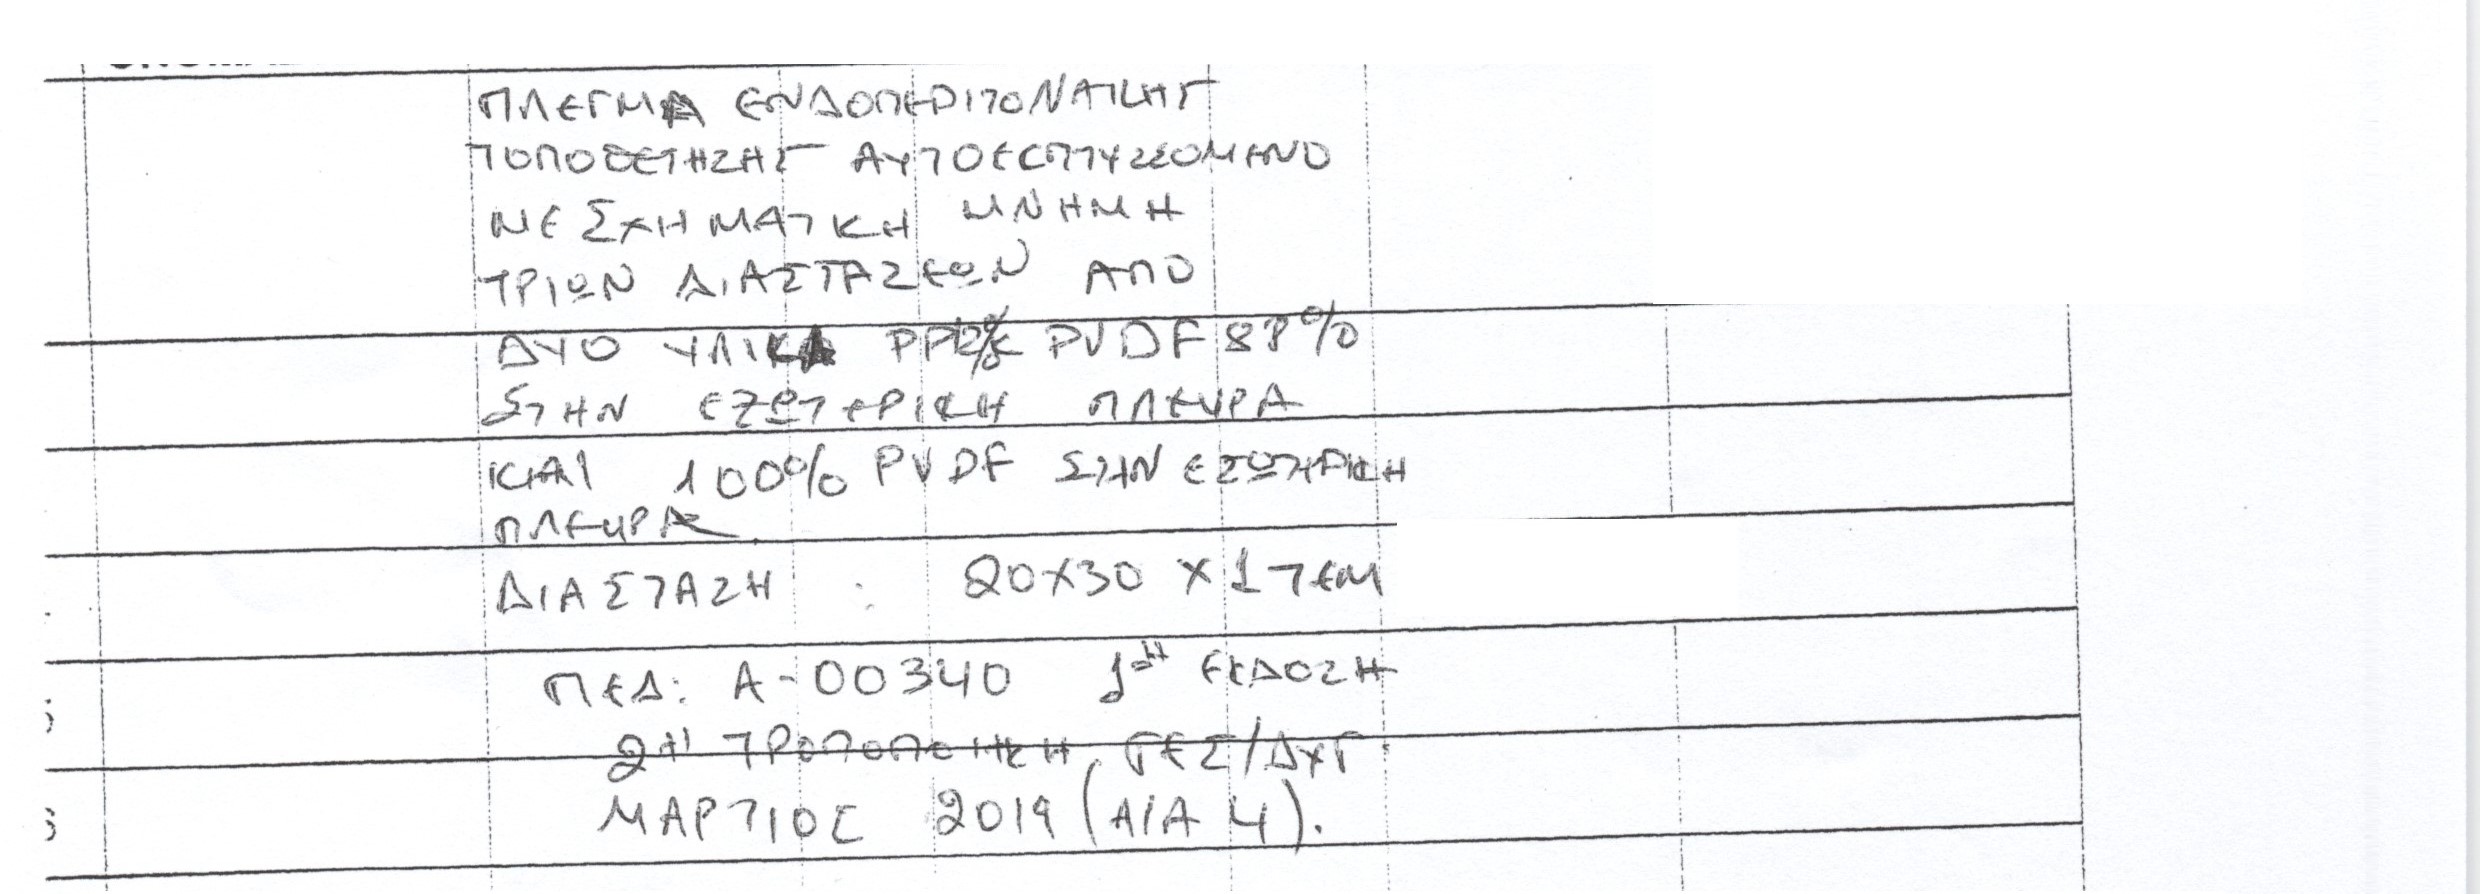 ΠΛΕΓΜΑ ΕΝΔΟΠΕΡΙΤΟΝΑΙΚΗΣ
ΤΟΠΟΘΕΤΗΣΗΣ ΑΥΤΟΕΚΠΤΥΣΣΟΜΕΝΟ
ΜΕ ΣΧΗΜΑΤΚΗ ΜΝΗΜΗ
ΤΡΙΩΝ ΔΙΑΣΤΑΣΕΩΝ ΑΠΟ
ΔΥΟ ΥΛΙΚΑ PVDF 88%
ΣΤΗΝ ΕΞΩΤΕΡΙΚΗ ΠΛΕΥΡΑ
ΚΑΙ 100% PVDF ΣΤΗΝ ΕΣΩΤΕΡΙΚΗ
ΠΛΕΥΡΑ
ΔΙΑΣΤΑΣΗ : 20X30 X 1 ΤΕΜ
ΠΕΔ: Α-00340 1η ΕΚΔΟΣΗ
2η ΤΡΟΠΟΠΟΙΗΣΗ ΓΕΣ/ΔΥΓ
ΜΑΡΤΙΟΣ 2019 (Α/Α 4).